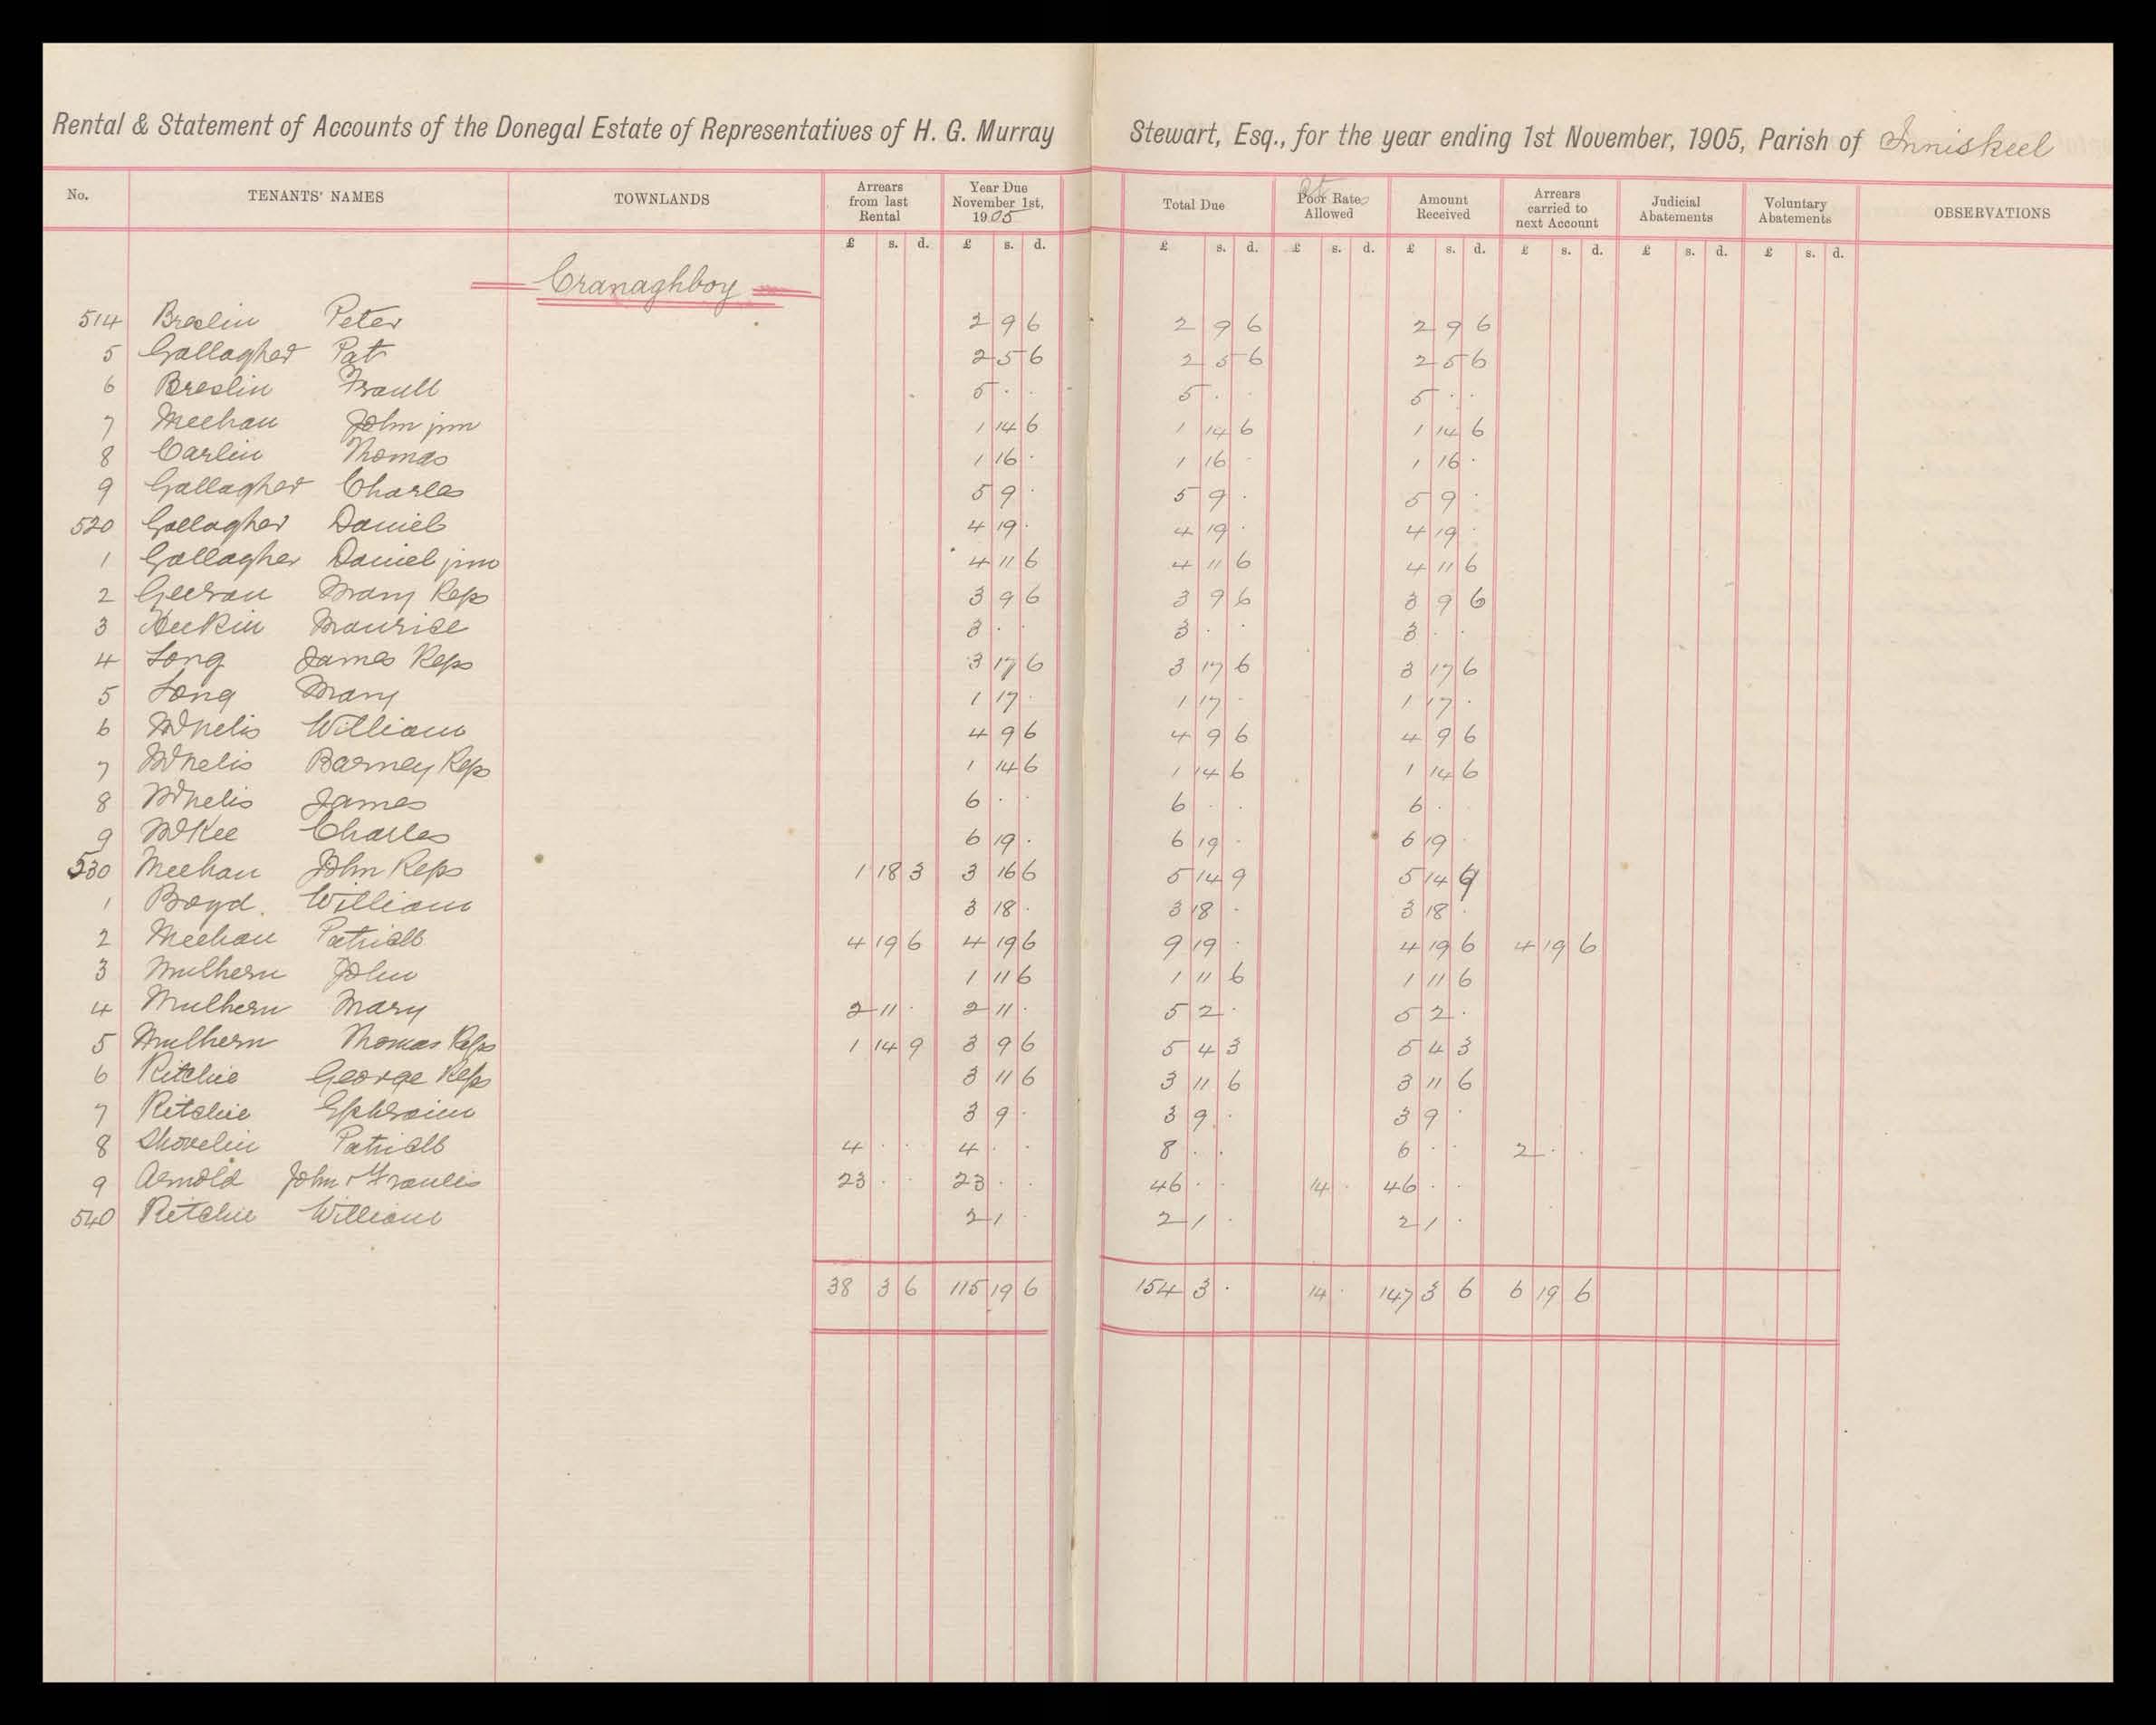 Rental & Statement of Accounts of the Donegal Estate of Representatives of H. G. Murray Stewart, Esq., for the year ending 1st November, 1905, Parish of Inniskeel
No. TENANTS' NAMES TOWNLANDS Arrears from last Rental Year Due November 1st, 1905 Total Due Poor Rate Allowed Amount Received Arrears carried to next Account Judicial Abatements Voluntary Abatements OBSERVATIONS
£ s. d. £ s. d. £ s. d. £ s. d. £ s. d. £ s. d. £ s. d. £ s. d.
Cranaghboy
514 Breslin Peter 2 9 6 2 9 6 2 9 6
5 Gallagher Pat 2 5 6 2 5 6 2 5 6
6 Breslin Frank 5 · · 5 · · 5 · ·
7 Meehan John jun 1 14 6 1 14 6 1 14 6
8 Carlin Thomas 1 16 · 1 16 · 1 16 ·
9 Gallagher Charles 5 9 · 5 9 · 5 9 ·
520 Gallagher Daniel 4 19 · 4 19 · 4 19 ·
1 Gallagher Daniel jun 4 11 6 4 11 6 4 11 6
2 Geeran Mary Reps 3 9 6 3 9 6 3 9 6
3 Maurice 3 · · 3 · · 3 · ·
4 Long James Reps 3 17 6 3 17 6 3 17 6
5 Long Mary 1 17 · 1 17 · 1 17 ·
6 McNelis William 4 9 6 4 9 6 4 9 6
7 McNelis Barney Reps 1 14 6 1 14 6 1 14 6
8 McNelis James 6 · · 6 · · 6 · ·
9 McKee Charles 6 19 · 6 19 · 6 19 ·
530 Meehan John Reps 1 18 3 3 16 6 5 14 9 5 14 9
1 Boyd William 3 18 · 3 18 · 3 18 ·
2 Meehan Patrick 4 19 6 4 19 6 9 19 · 4 19 6 4 19 6
3 Mulhern John 1 11 6 1 11 6 1 11 6
4 Mulhern Mary 2 11 · 2 11 · 5 2 · 5 2 ·
5 Mulhern Thomas Reps 1 14 9 3 9 6 5 4 3 5 4 3
6 Ritchie George Reps 3 11 6 3 11 6 3 11 6
7 Ritchie Ephraim 3 9 · 3 9 · 3 9 ·
8 Shovelin Patrick 4 · · 4 · · 8 · · 6 · · 2 · ·
9 Arnold John & Francis 23 · · 23 · · 46 · · 14 · 46 · ·
540 Ritchie William 2 1 · 2 1 · 2 1 ·
38 3 6 115 19 6 154 3 · 14 · 147 3 6 6 19 6